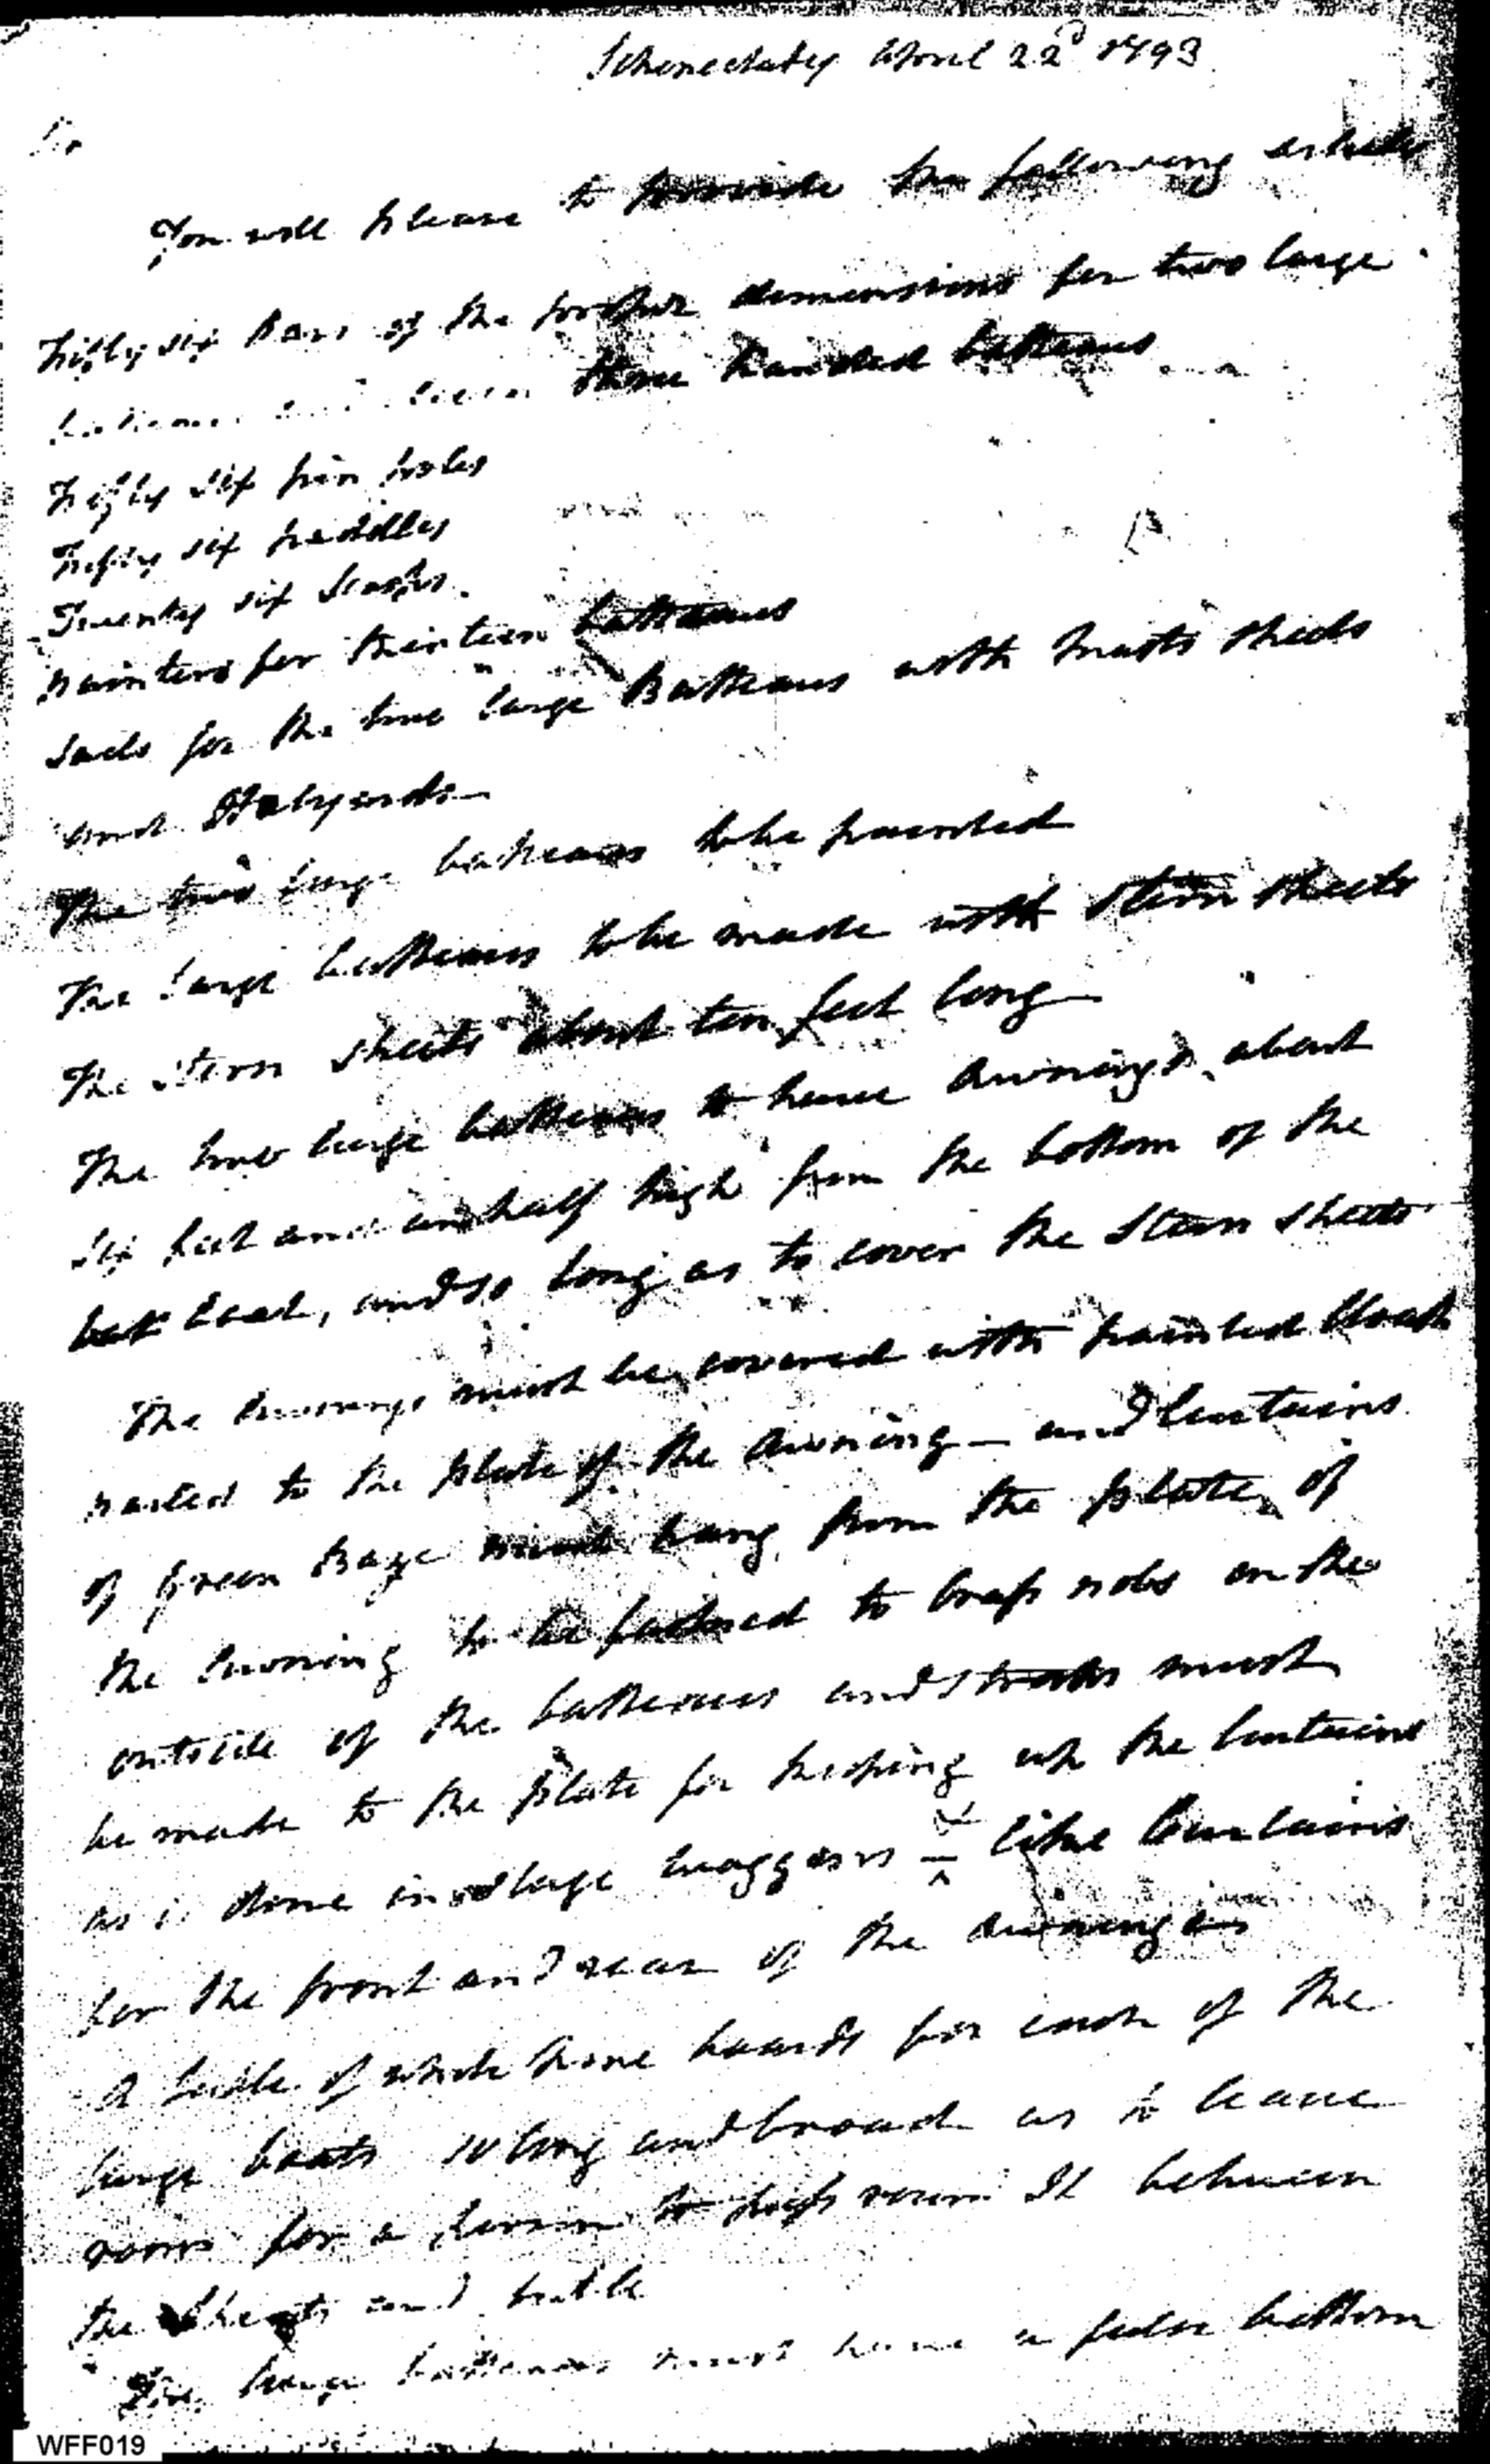 Schenectady April 22d 1793
Sir
You will please to provide the following articles
Fifty six Oars of the proper dimensions for two large
batteaus and eleven three handed batteaus
Fifty six pin poles
Fifty six paddles
Twenty six Scoops.
painters for thirteen batteaus
Sails for the two large Batteaus with Masts Sheets
and Halyards
The two large batteaus to be painted
The large batteaus to be made with Stern sheets
The stern sheets about ten feet long
The two large batteaus to have Awnings about
six feet and an half high from the bottom of the
boat, and so long as to cover the Stern sheets
The Awnings must be covered with painted Cloath
nailed to the plate of the Awning — and Curtains
of green Baze must hang from the plate of
the Awning to be fastened to brass nobs on the
outside of the batteaus and straps must
be made to the plate for keeping up the Curtains
as is done in stage waggons — like Curtains
for the front and rear of the awning
A table of white pine boards for each of the
large boats so long and broad as to leave
room for a person to pass round it between
the Sheets and table
The large batteaus must have a false bottom
WFF019